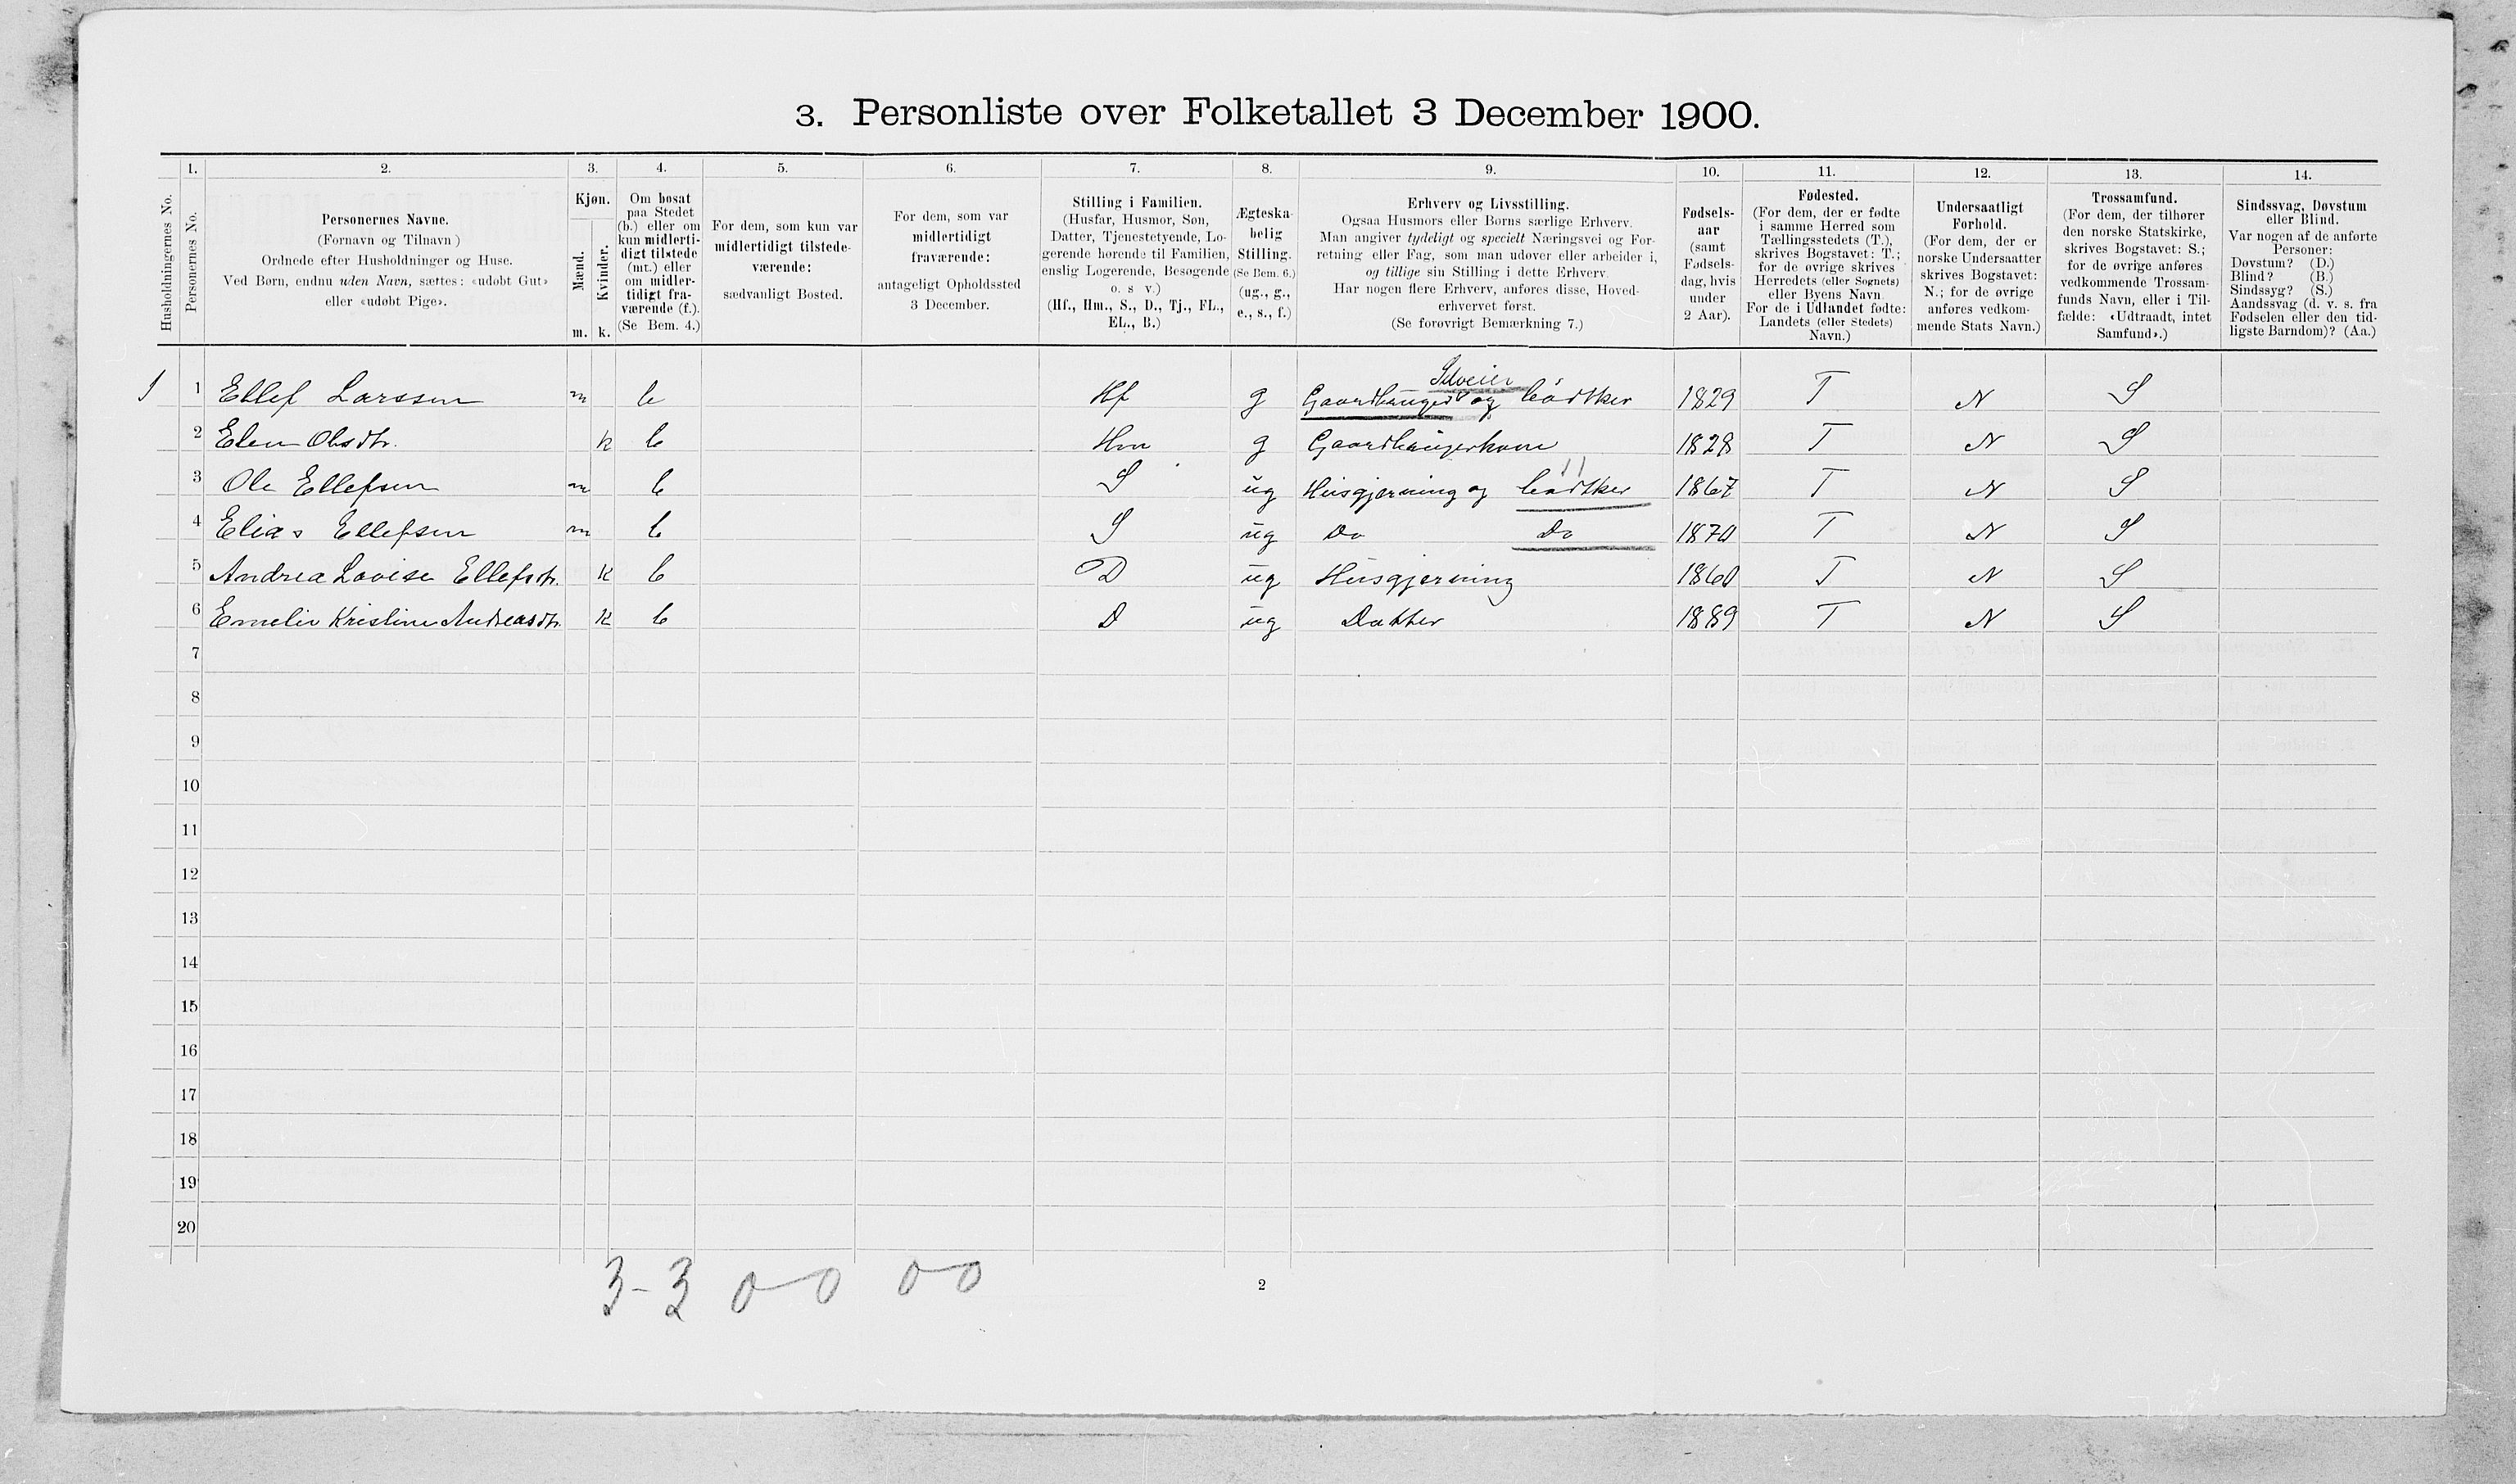 3. Personliste over Folketallet 3 December 1900.
1. 2. 3. 4. 5. 6. 7. 8. 9. 10. 11. 12. 13. 14.
Husholdningernes No.
Personernes No.
Personernes Navne.
(Fornavn og Tilnavn)
Ordnede efter Husholdninger og Huse.
Ved Børn, endnu uden Navn, sættes: «udøbt Gut»
eller «udøbt Pige».
Kjøn.
Mænd.
Kvinder.
m. k.
Om bosat
paa Stedet
(b.) eller om
kun midlerti-
digt tilstede
(mt.) eller
om midler-
tidigt fra-
værende (f.).
(Se Bem. 4.)
For dem, som kun var
midlertidigt tilstede-
værende:
sædvanligt Bosted.
For dem, som var
midlertidigt
fraværende:
antageligt Opholdssted
3 December.
Stilling i Familien.
(Husfar, Husmor, Søn,
Datter, Tjenestetyende, Lo-
gerende hørende til Familien,
enslig Logerende, Besøgende
o. s v.)
(Hf., Hm., S., D., Tj., FL.,
EL., B.)
Ægteska-
belig
Stilling.
(Se Bem. 6.)
(ug., g.,
e., s., f.)
Erhverv og Livsstilling.
Ogsaa Husmors eller Børns særlige Erhverv.
Man angiver tydeligt og specielt Næringsvei og For-
retning eller Fag, som man udøver eller arbeider i,
og tillige sin Stilling i dette Erhverv.
Har nogen flere Erhverv, anføres disse, Hoved-
erhvervet først.
(Se forøvrigt Bemærkning 7.)
Fødsels-
aar
(samt
Fødsels-
dag, hvis
under
2 Aar).
Fødested.
(For dem, der er fødte
i samme Herred som
Tællingsstedets (T.),
skrives Bogstavet: T.;
for de øvrige skrives
Herredets (eller Sognets)
eller Byens Navn.
For de i Udlandet fødte:
Landets (eller Stedets)
Navn.)
Undersaatligt
Forhold.
(For dem, der er
norske Undersaatter
skrives Bogstavet:
N.; for de øvrige
anføres vedkom-
mende Stats Navn.)
Trossamfund.
(For dem, der tilhører
den norske Statskirke,
skrives Bogstavet: S.;
for de øvrige anføres
vedkommende Trossam-
funds Navn, eller i Til-
fælde: «Udtraadt, intet
Samfund».)
Sindssvag, Døvstum
eller Blind.
Var nogen af de anførte
Personer:
Døvstum? (D.)
Blind? (B.)
Sindssyg? (S.)
Aandssvag (d. v. s. fra
Fødselen eller den tid-
ligste Barndom)? (Aa.)
Selveier
1 1 Ellef Larssen m b Hf g Gaardbruger og bødtker 1829 T N S
2 Elen Olsdtr. k b Hm g Gaardbrugerkone 1828 T N S
3 Ole Ellefsen m b S ug Husgjerning og bødtker 1867 T N S
4 Elias Ellefsen m b S ug Do Do 1870 T N S
5 Andrea Lovise Ellefsdtr. k b D ug Husgjerning 1860 T N S
6 Emelie Kristine Andreasdtr. k b D ug Datter 1889 T N S
7
8
9
10
11
12
13
14
15
16
17
18
19
20
3-3 0-0 0-0
2